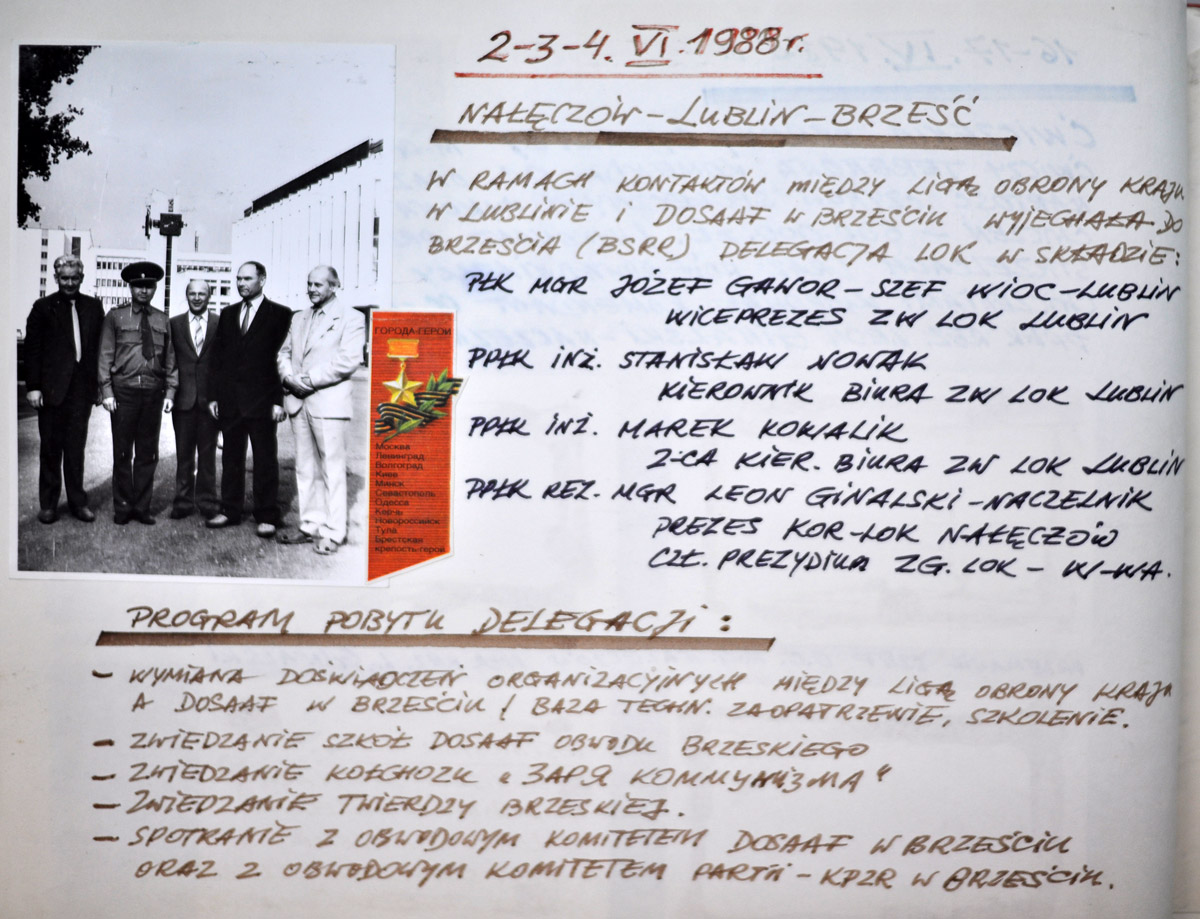 2-3-4. VI. 1988 r.
NAŁĘCZÓW-LUBLIN-BRZEŚĆ
W RAMACH KONTAKTÓW MIĘDZY LIGĄ OBRONY KRAJU
W LUBLINIE I DOSAAF W BRZEŚCIU WYJECHAŁA DO
BRZEŚCIA (BSRR) DELEGACJA LOK W SKŁADZIE:
PŁK MGR JÓZEF GAWOR - SZEF WIOC-LUBLIN
WICEPREZES ZW LOK LUBLIN
PPŁK INŻ. STANISŁAW NOWAK
KIEROWNIK BIURA ZW LOK LUBLIN
PPŁK INŻ. MAREK KOWALIK
Z-CA KIER. BIURA ZW LOK LUBLIN
PPŁK REZ. MGR LEON GINALSKI - NACZELNIK
PREZES KOR-LOK NAŁĘCZÓW
CZŁ. PREZYDIUM ZG. LOK - W-WA.
ГОРОДА-ГЕРОИ
Москва
Ленинград
Волгоград
Киев
Минск
Севастополь
Одесса
Керчь
Новороссийск
Тула
Брестская
крепость-герой
PROGRAM POBYTU DELEGACJI:
- WYMIANA DOŚWIADCZEŃ ORGANIZACYJNYCH MIĘDZY LIGĄ OBRONY KRAJU
A DOSAAF W BRZEŚCIU / BAZA TECHN. ZAOPATRZENIE, SZKOLENIE.
- ZWIEDZANIE SZKÓŁ DOSAAF OBWODU BRZESKIEGO
- ZWIEDZANIE KOŁCHOZU „ЗАРЯ КОММУНИЗМА"
- ZWIEDZANIE TWIERDZY BRZESKIEJ.
- SPOTKANIE Z OBWODOWYM KOMITETEM DOSAAF W BRZEŚCIU
ORAZ Z OBWODOWYM KOMITETEM PARTII - KPZR W BRZEŚCIU.